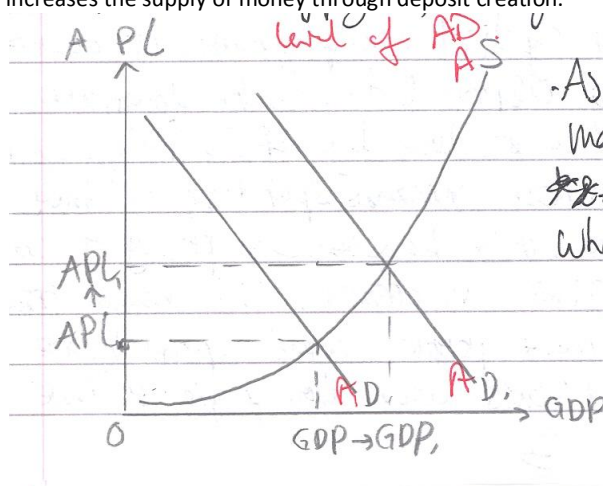 increases the supply of money through deposit creation.
A PL
level of AD.
AS
·As
Wh
APL₁
↑
APL
AD
AD₁
GDP
O
GDP→GDP₁